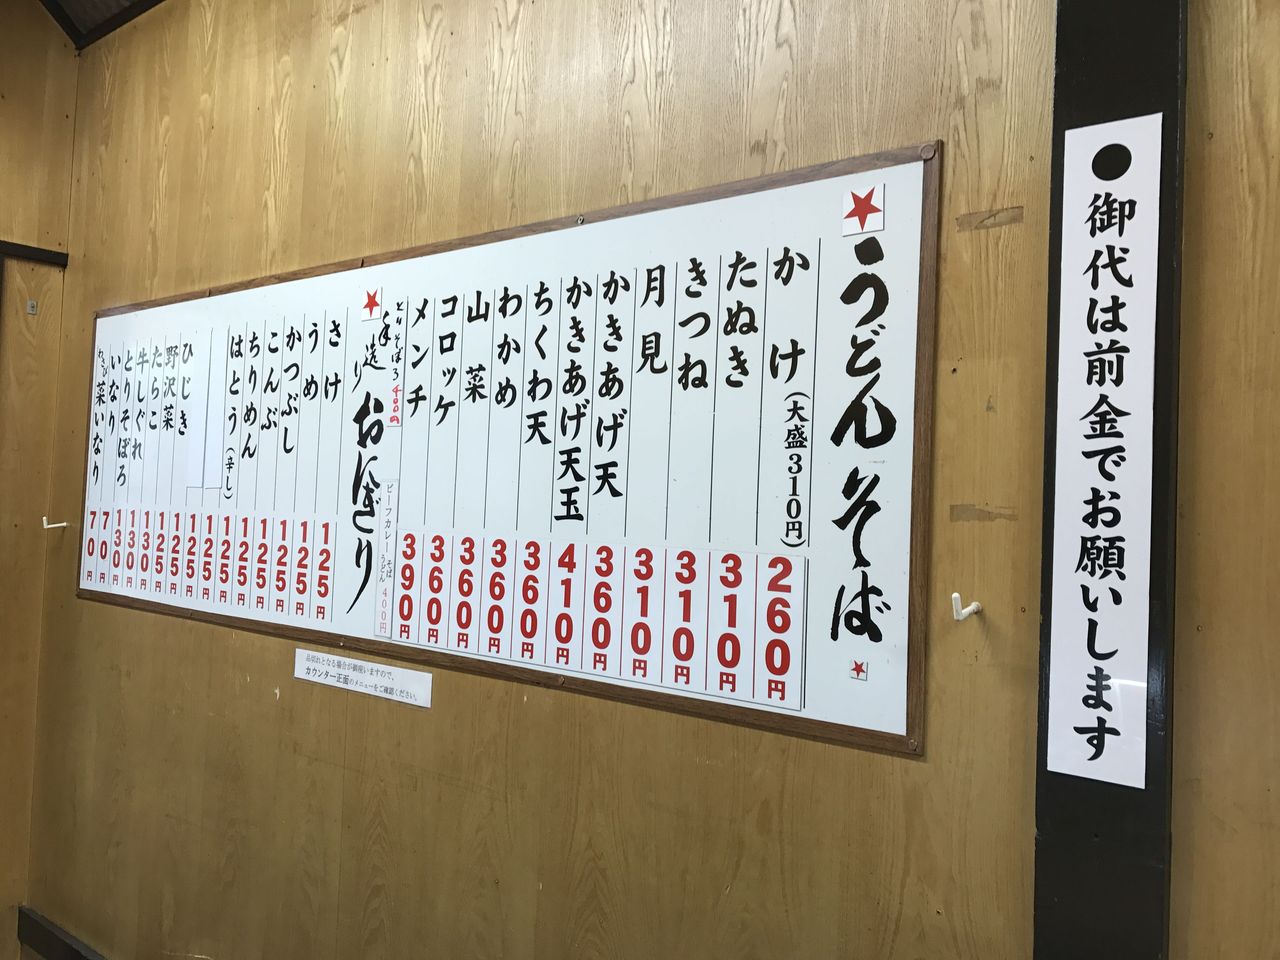 ●御代は前金でお願いします
★うどんそば★
かけ(大盛310円) 260円
たぬき 310円
きつね 310円
月見 310円
かきあげ天 360円
かきあげ天玉 410円
ちくわ天 360円
わかめ 360円
山菜 360円
コロッケ 360円
メンチ 390円
とりそぼろ400円
ビーフカレー そば うどん 400円
★手造りおにぎり
さけ 125円
うめ 125円
かつぶし 125円
こんぶ 125円
ちりめん 125円
はとう(辛し) 125円
125円
125円
ひじき 125円
野沢菜 125円
たらこ 125円
牛しぐれ 130円
とりそぼろ 130円
いなり 70円
わさび菜いなり 70円
品切れとなる場合が御座いますので、
カウンター正面のメニューをご確認ください。